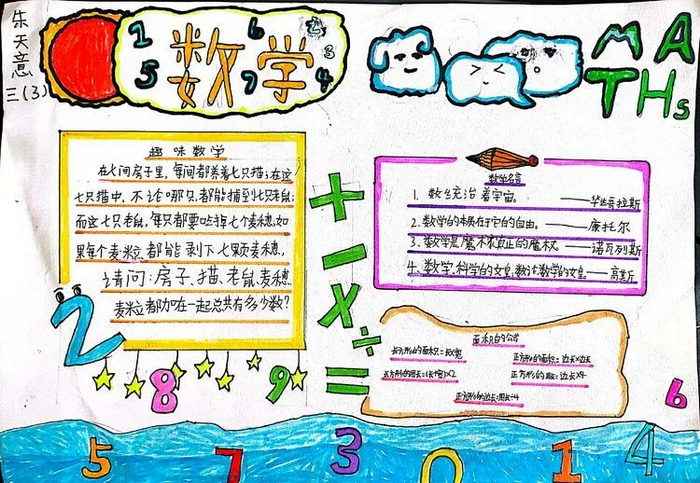 朱天意
三(3)
数学
1
5
6
7
2
3
4
MATHs
趣味数学
在七间房子里,每间都养着七只猫;在这
七只猫中,不论哪只,都能捕到七只老鼠;
而这七只老鼠,每只都要吃掉七个麦穗;如
果每个麦粒都能剥下七颗麦穗,
请问:房子、猫、老鼠、麦穗、
麦粒都加在一起总共有多少数?
数学名言
1. 数统治着宇宙。——毕达哥拉斯
2. 数学的本质在于它的自由。——康托尔
3. 数学是魔术家真正的魔杖。——诺瓦列斯
4. 数学,科学的女皇,数论,数学的女皇——高斯
+
-
×
÷
=
面积的公式
长方形的面积=长×宽
正方形的面积=边长×边长
长方形的周长=(长+宽)×2
正方形的周长=边长×4
正方形的边长=周长÷4
2
8
9
6
5
7
3
0
1
4